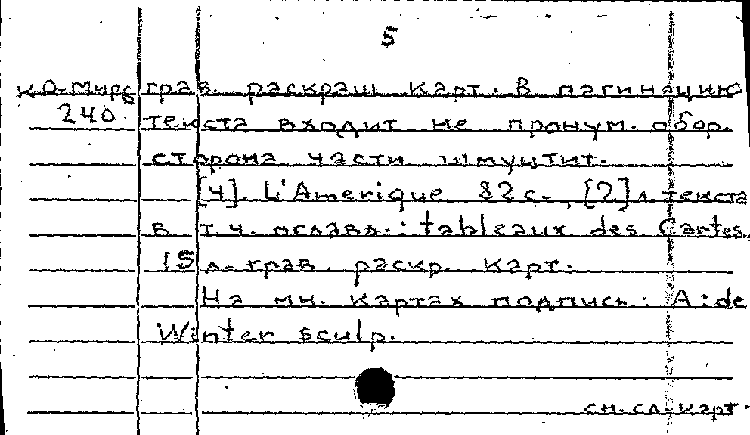 5
КО-Мирб грав. раскраш карт. В пагинацию
240 текста входит не пронум. обор.
сторона части шмуцтит.
[4]. L'Amerique 82 с., [2] л. текста
в т.ч. оглавл.: tableaux des Cartes,
15 л. грав. раскр. карт.
На мн. картах подпись: A: de
Winter sculp.
см. сл. карт.